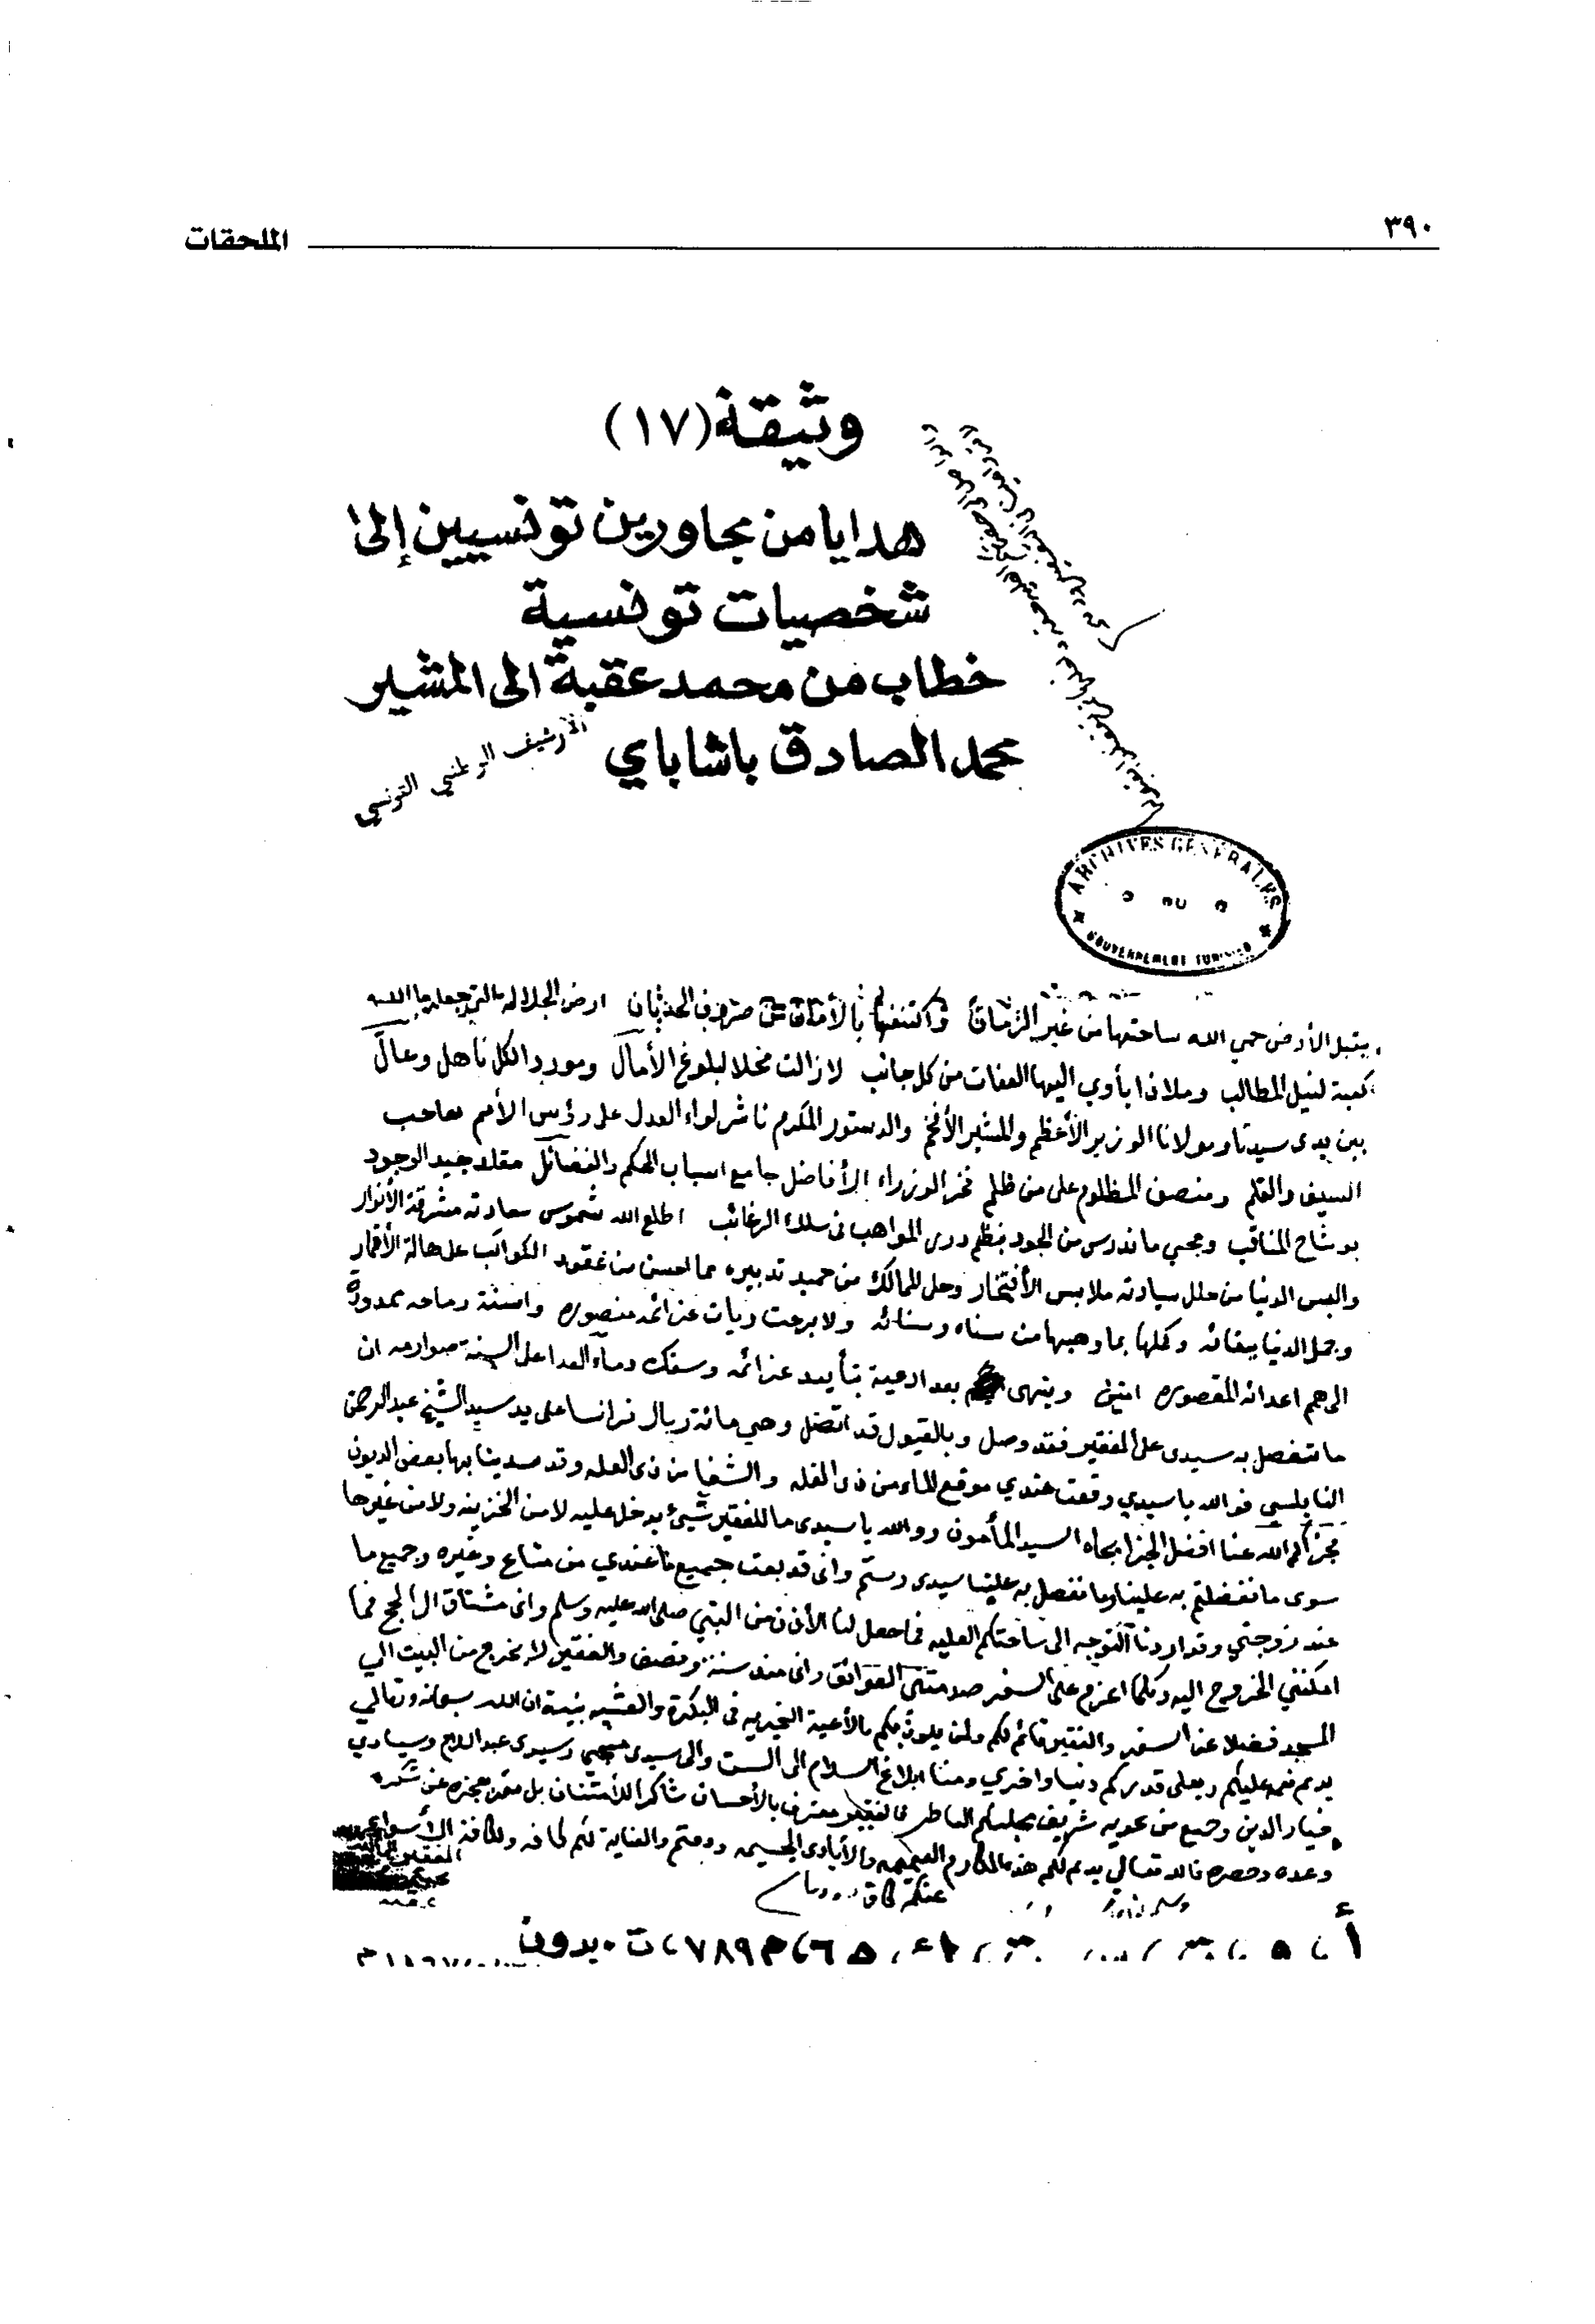 ٣٩٠
الملحقات
وثيقة (١٧)
هدايا من مجاورين تونسيين إلى
شخصيات تونسية
خطاب من محمد عقبة الى المشير
محمد الصادق باشا باي
الأرشيف الوطني التونسي
ARCHIVES GÉNÉRALES
GOUVERNEMENT TUNISIEN
يقبل الأرض حمي الله ساحتها من غير الزمان واكتنفها بالأمان من صروف الحدثان ارض الجلالة التي جعلها الله
كعبة لنيل المطالب وملاذا يأوي اليها العفات من كل جانب لا زالت محلا لبلوغ الأمال وموردا لكل ناهل وعال
بين يدى سيدنا ومولانا الوزير الأعظم والمشير الأفخم والدستور المكرم ناشر لواء العدل على رؤس الأمم صاحب
السيف والقلم ومنصف المظلوم على من ظلم فخر الوزراء الأفاضل جامع اسباب الحكم والفضائل مقلد جيد الوجود
بوشاح المناقب ومحيي ما ندرس من الجود بنظم درى المواهب في سلك الرغائب اطلع الله شموس سعادته مشرقة الأنوار
والبس الدنيا من حلل سيادته ملابس الأفتخار وحلى الممالك من حميد تدبيره مما احسن من عقود الكواكب على هالة الأقمار
وجمل الدنيا ببقائه وكملها بما وهبها من سناه وسنائه ولا برحت رايات عزائمه منصوره واسنة رماحه ممدودة
الى هم اعدائه المقصوره امين وينهى بعد ادعية بتأييد عزائمه وسفك دماء العدا على السنة صوارمه ان
ما تفضل به سيدى على الفقير فقد وصل وبالقبول قد اتصل وهي مائة ريال فرانسا على يد سيد الشيخ عبد الرحمن
النابلسي فوالله يا سيدي وقعت عندي موقع الماء من ذى الغله والشفا من ذى العله وقد سدينا بها بعض الديون
فجزاكم الله عنا افضل الجزا بجاه السيد المأمون ووالله يا سيدى ما للفقير شيئ يدخل عليه لا من الخزينه ولا من غيرها
سوى ما تفضلتم به علينا وما تفضل به علينا سيدى رستم وانى قد بعت جميع ما عندي من متاع وغيره وجميع ما
عند زوجتي وقد اردنا التوجه الى ساحتكم العليه فما حصل لنا الأذن من النبي صلى الله عليه وسلم وانى مشتاق الى الحج فما
امكنني الخروج اليه وكلما اعزم على السفر صدمتني العوائق وانى منذ سنة ونصف والفقير لا يخرج من البيت الي
المسجد فضلا عن السفر والفقير قائم لكم بالأدعية الخيريه في البكرة والعشيه بنية ان الله سبحانه وتعالي
يدم نعمه عليكم ويعلى قدركم دنيا واخرى ومنا ابلاغ السلام الى الست والى سيدى وسيدى عبد السلام وسيادي
خيار الدين وجميع من يحويه شريف مجلسكم العاطر فالفقير معترف بالأحسان شاكرا للأمتنان بل عجزه عن شكره
وعده وحصره فالله تعالي يدم لكم هذه المكارم العميمه والأيادى الجسيمه ودمتم والعناية لكم كافه ولكافة الأسواء
عنكم كافه
بدون